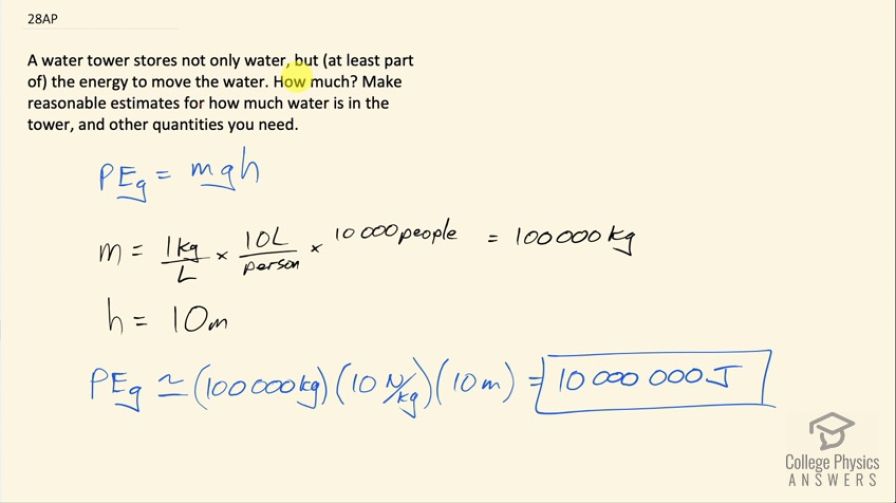 28AP
A water tower stores not only water, but (at least part
of) the energy to move the water. How much? Make
reasonable estimates for how much water is in the
tower, and other quantities you need.
PEg = mgh
m = 1kg/L × 10L/person × 10 000 people = 100 000 kg
h = 10m
PEg ≃ (100 000 kg)(10 N/kg)(10 m) = 10 000 000 J
College Physics
ANSWERS